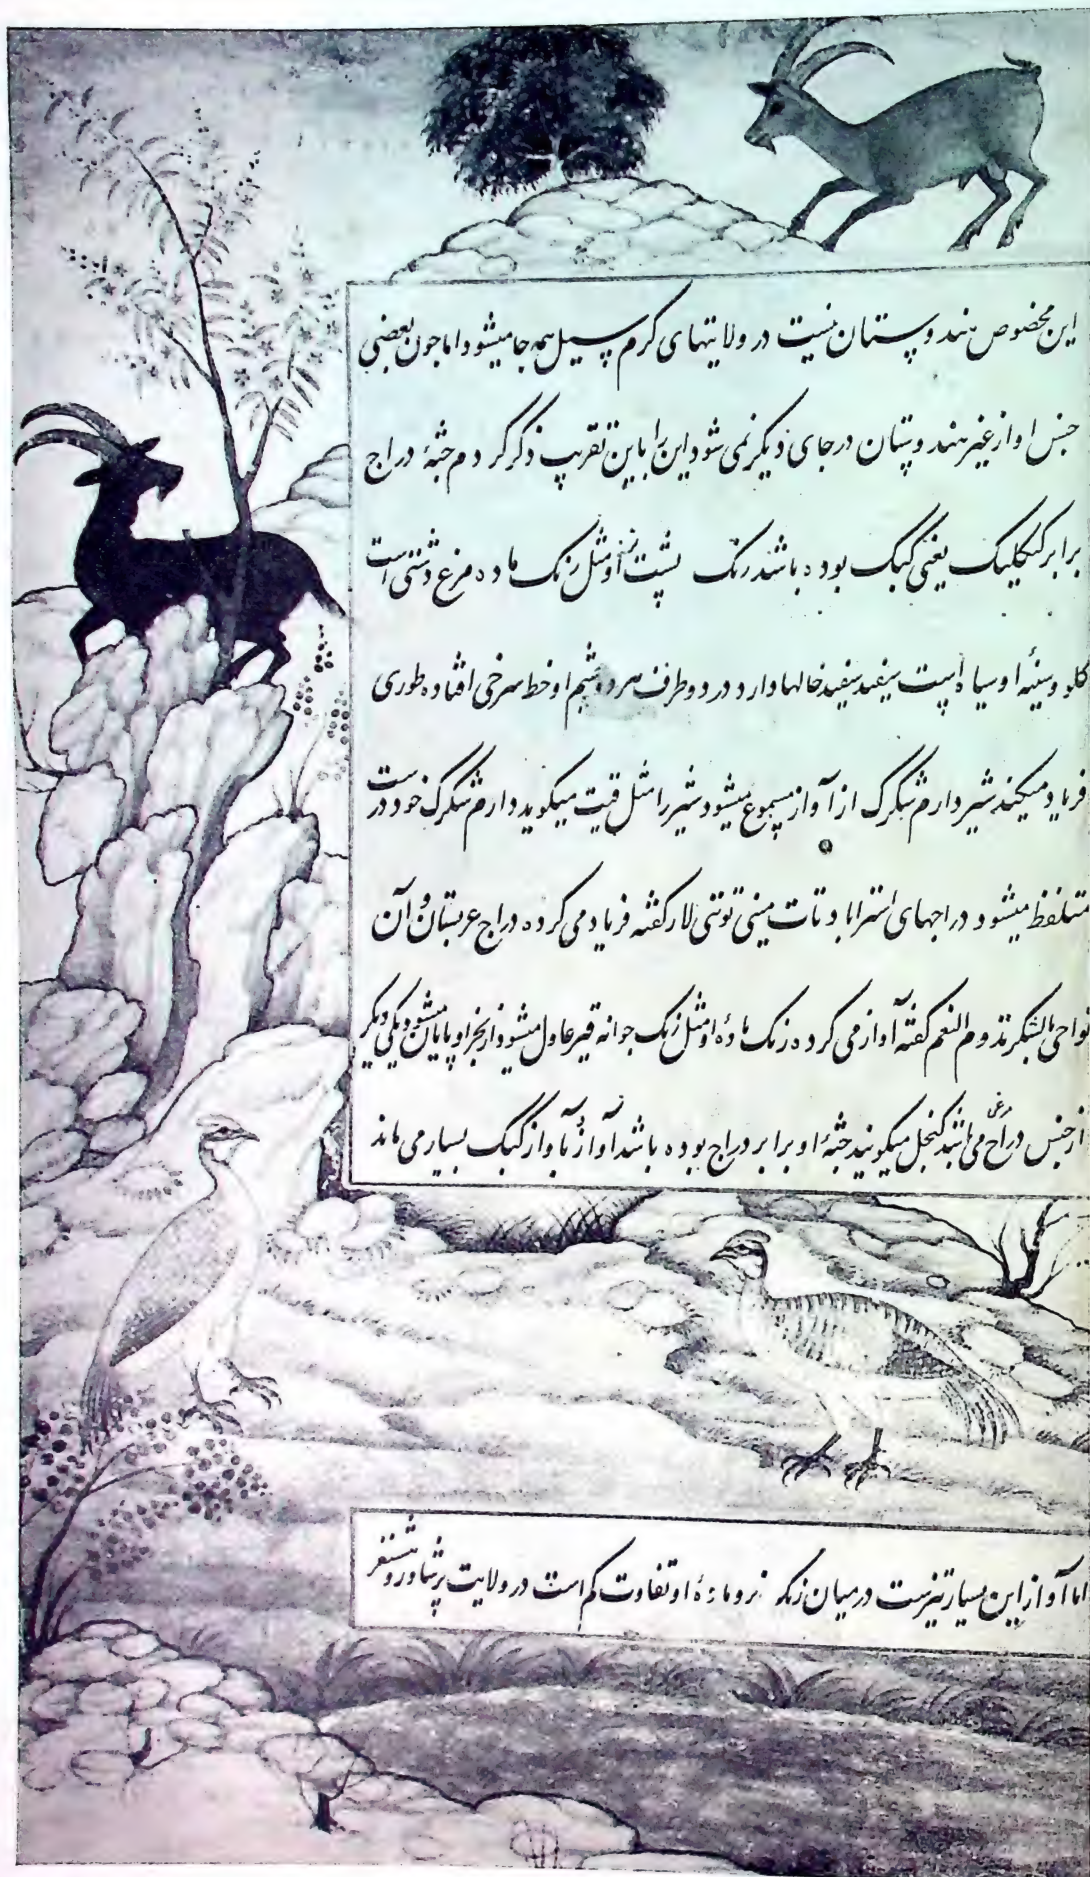 این مخصوص هندوستان نیست در ولایتهای کرم سیل همه جا میشود اما جون بعضی
جنس او از غیر هندوستان در جای دیکر نمی شود این را باین تقریب ذکر کردم جثهٔ دراج
برابر کیکلیک یعنی کبک بوده باشد رنک پشت او مثل رنک ماده مرغ دشتی است
کلو و سینهٔ او سیاه است سفید سفید خالها دارد در دو طرف هر دو چشم او خط سرخی افتاده طوری
فریاد میکند شیر دارم شکرک از آواز مسموع میشود شیر را مثل قیت میکوید دارم شکرک خود درست
متلفظ میشود دراجهای استراباد تات مینی توتی لار کفته فریاد می کرده دراج عربستان و آن
نواحی بالشکر تدوم النعم کفته آواز می کرده رنک مادهٔ او مثل رنک جوانه قیرغاول میشود از نجراو پایان میشود یکی دیکر
از جنس دراج مرغی می باشد کنجل میکویند جثهٔ او برابر دراج بوده باشد آواز او بآواز کبک بسیار می ماند
اما آواز این بسیار تیزست در میان رنک نر و مادهٔ او تفاوت کم است در ولایت پرشاور و هشنغر